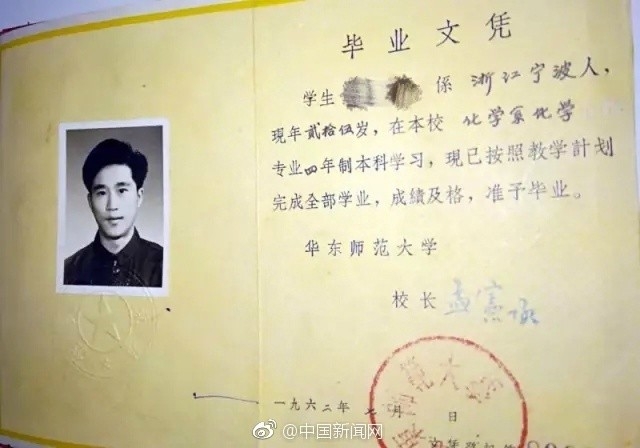 毕业文凭
学生 係 浙江宁波人，
現年贰拾伍岁，在本校 化学系化学
专业四年制本科学习，現已按照教学計划
完成全部学业，成績及格，准予毕业。
华东师范大学
校长 孟憲承
一九六二年 月 日
@中国新闻网